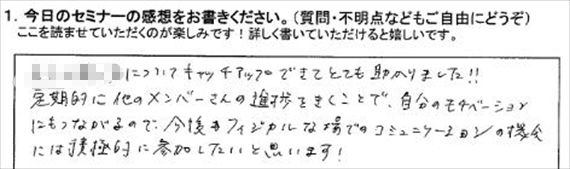 1. 今日のセミナーの感想をお書きください。(質問・不明点などもご自由にどうぞ)
ここを読ませていただくのが楽しみです!詳しく書いていただけると嬉しいです。
についてキャッチアップできてとても助かりました!!
定期的に他のメンバーさんの進捗をきくことで、自分のモチベーション
にもつながるので、今後もフィジカルな場でのコミュニケーションの機会
には積極的に参加したいと思います!